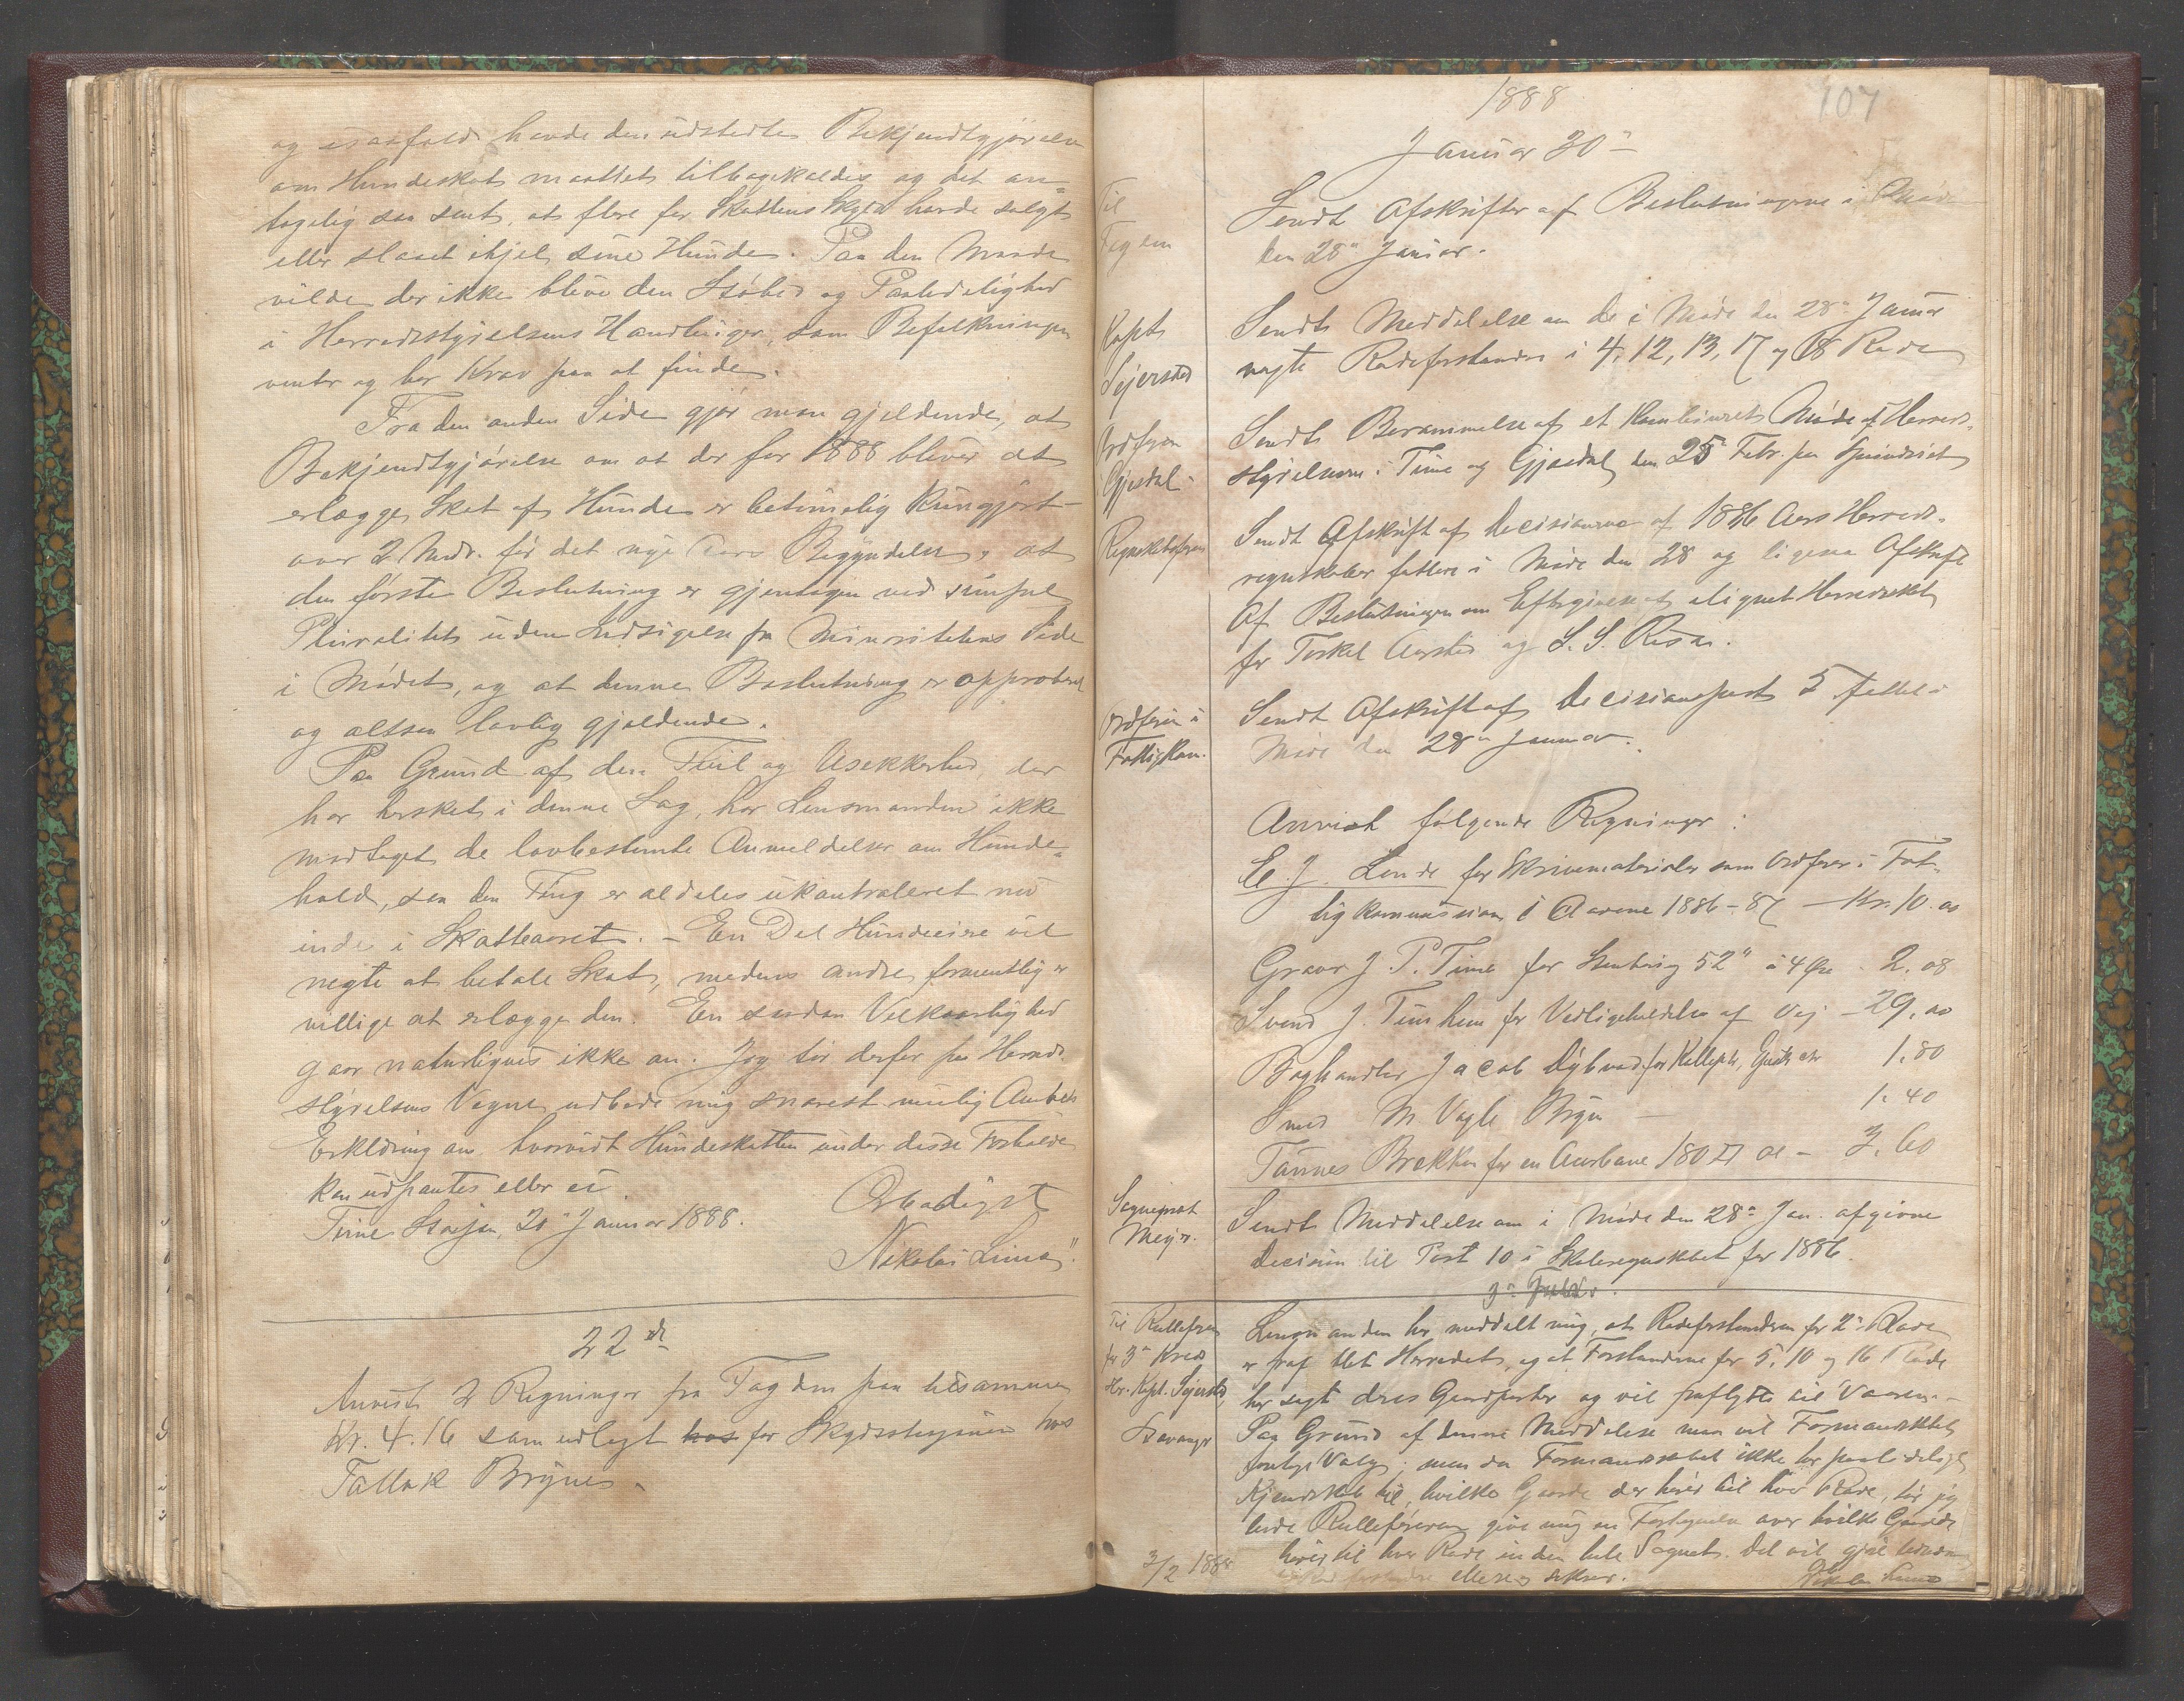 og isaafald havde den udstedte Bekjendtgjørelse
om Hundeskat maattet tilbagekaldes og det an-
tagelig saa sent, at flere for Skattens Skyld havde solgt
eller slaaet ihjel sine Hunde. Paa den Maade
vilde der ikke blive den Støhed og Paalidelighed
i Herredsstyrelsens Handlinger, som Befolkningen
venter og har Krav paa at finde.
Fra den anden Side gjør man gjeldende, at
Bekjendtgjørelse om at der for 1888 bliver at
erlægge Skat af Hunde er betimelig kungjort
over 2 Mdr. før det nye Aars Begyndelse, at
den første Beslutning er gjentagen ved simpel
Pluralitet uden Indsigelse fra Minoritetens Side
i Mødet, og at denne Beslutning er approberet
og altsaa lovlig gjeldende.
Paa Grund af den Tvil og Usikkerhed der
har hersket i denne Sag, har Lensmanden ikke
modtaget de lovbestemte Anmeldelser om Hunde-
hold, saa den Ting er aldeles ukontroleret nu
inde i Skatteaaret. - En Del Hundeeiere vil
negte at betale Skat, medens andre formentlig er
villige at erlægge den. En saadan Vilkaarlighed
gaar naturligvis ikke an. Jeg tør derfor paa Herreds
styrelsens Vegne udbede mig snarest mulig Amtets
Erklæring om hvorvidt Hundeskatten under disse Forholde
kan udpantes eller ei.
Time Januar 1888. Ærbødigst
Nikolai Lima".
22de
Anvist 2 Regninger fra Fogden paa tilsammen
Kr. 4.16 som udlagt hos for Skydsstyrjing hos
Tollak Brynes.
1888 107
Januar 30"
Til
Fogden
Sendt Afskrifter af Beslutningerne i Møde
den 28" Januar.
Kapt.
Sejersted
Sendt Meddelelse om de i Møde den 28" Januar
valgte Rodeforstandere i 4, 12, 13, 17 og 18 Rode
Ordføren
Gjesdal
Sendt Berammelse af et Kombineret Møde af Herreds-
styrelserne i Time og Gjesdal den 25 Febr. paa
Regnskabsføren
Sendt Afskrift af Decisionerne af 1886 Aars Herreds-
regnskaber fattede i Møde den 28 og ligesaa Afskrift
Af Beslutningen om Eftergivelse af ilignet Herredsskat
for Torkel Aarstad og S. S. Risa.
Ordføren i
Fattigkom.
Sendt Afskrift af Decisionspost 5 fattet i
Møde den 28" Januar.
Anvist følgende Regninger:
E. J. Linde for Skrivematerialer som Ordfører i Fat-
tigkommissionen i Aarene 1886-87 - Kr. 10.00
Graver J. P. Time for 52" a 4 Øre - 2.08
Svend J. Timhem for Vedligeholdelse af Vej - 29.00
Boghandler Jacob Dybwad for 1.80
Smed M. Vagle Bryn - 1.40
Tønnes Brekke for en 180 - 3.60
Sogneprest
Meyer.
Sendt Meddelelse om i Møde den 28" Jan. afgivne
Decision til Post 10 i Skoleregnskabet for 1886.
3" Febr.
Til Rulleføren
for 3" Kreds
Hr. Kapt. Sejersted
Stavanger
Lensmanden har meddelt mig, at Rodeforstanderen for 2" Rode
er fraflyttet Herredet, og at Forstanderne for 5, 10 og 16 Rode
har solgt deres Gaardparter og vil fraflytte til Vaaren.-
Paa Grund af denne Meddelelse maa vel Formandskabet
foretage Valg; men da Formandskabet ikke har paalidelig
Kjendskab til, hvilke Gaarde der hører til hver Rode, tør jeg
bede Rulleføreren give mig en Fortegnelse over hvilke Gaarde
hører til hver Rode inden hele Sognet. Det vil gjøre
3/2 1888 Nikolai Lima